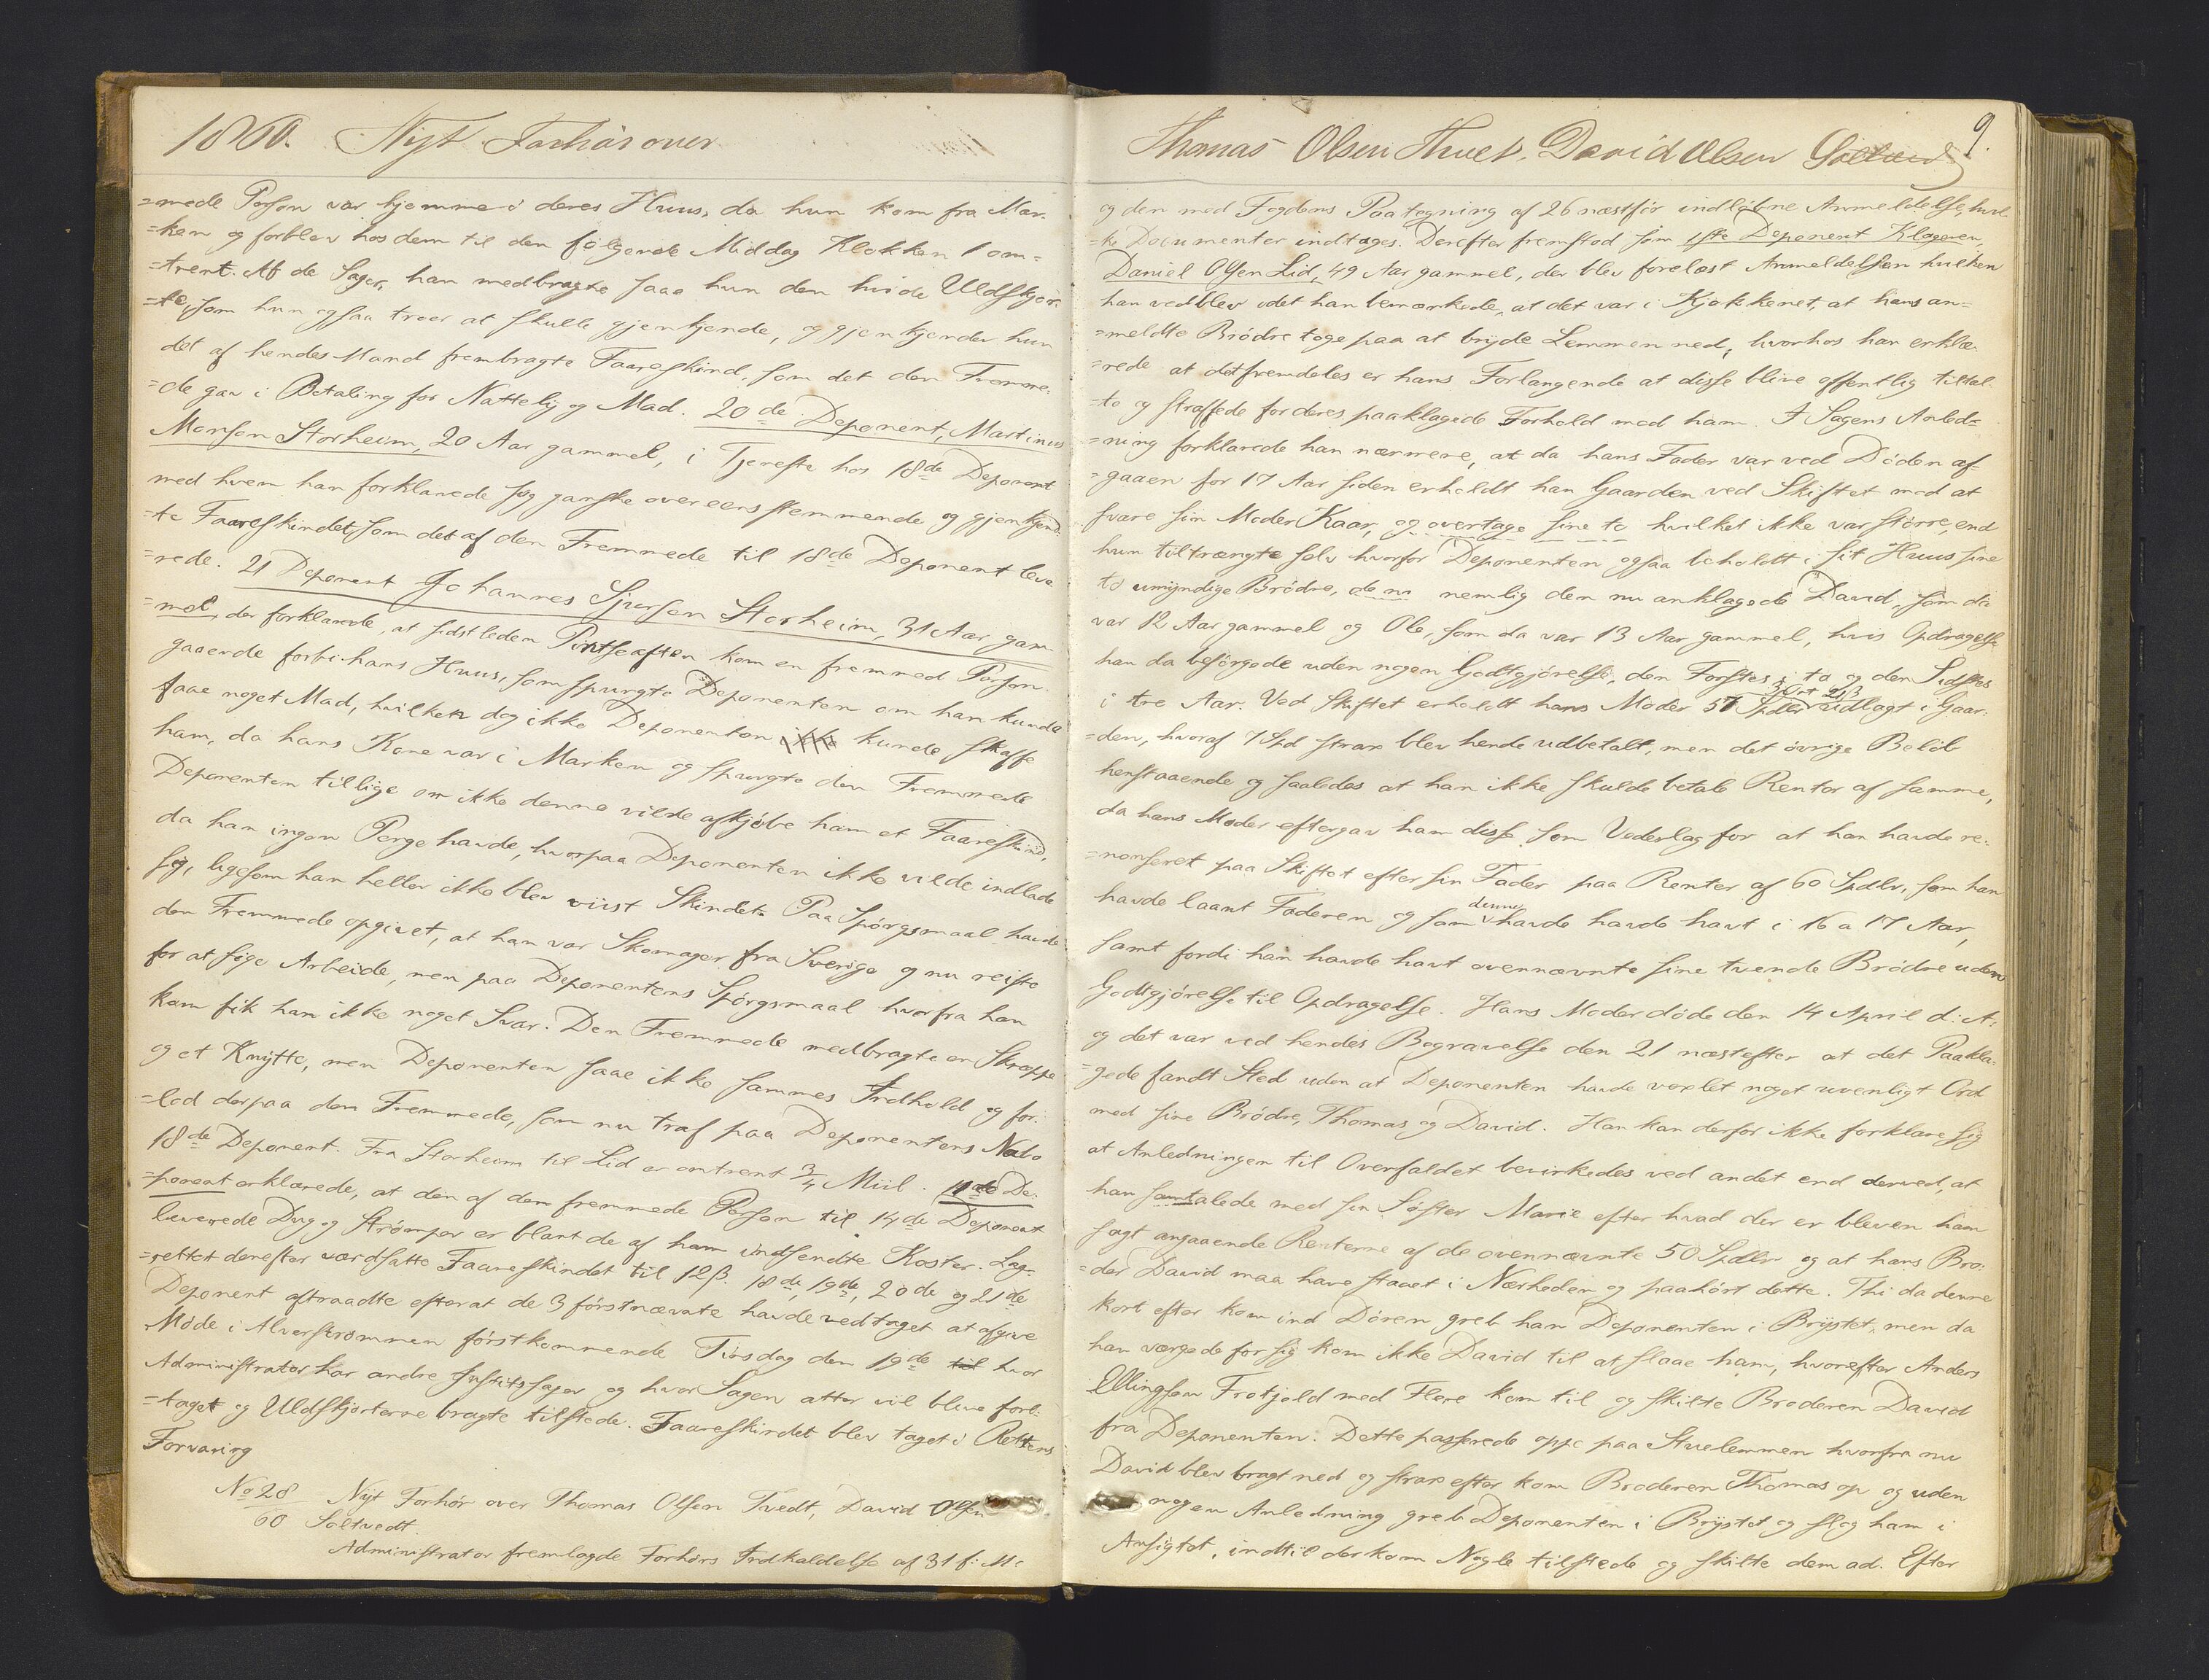 1860. Nyt Forhør over
=mede Person var hjemme i deres Huus, da hun kom fra Mar-
=ken og forblev hos dem til den følgende Middag Klokken 1 om=
=trent. Af de Sager, han medbragte saae hun den hvide Uldskjor-
=te, som hun ogsaa troer at skulle gjenkjende, og gjenkjender hun
det af hendes Mand frembragte Faareskind, som det den Fremme-
=de gav i Betaling for Nattely og Mad. 20de Deponent, Martinus
Monsen Storheim, 20 Aar gammel, i Tjeneste hos 18de Deponent
med hvem han forklarede sig ganske overeensstemmende og gjenkjend-
=te Faareskindet, som det af den Fremmede til 18de Deponent leve-
=rede. 21 Deponent Johannes Sjursen Storheim, 31 Aar gam-
=mel, der forklarede, at sidstleden Pintseaften kom en fremmed Person
gaaende forbi hans Huus, som spurgte Deponenten om han kunde
faae noget Mad, hvilken dog ikke Deponenten kunde skaffe
ham, da hans Kone var i Marken og spurgte den Fremmede
Deponenten tillige om ikke denne vilde afkjøbe ham et Faareskind,
da han ingen Penge havde, hvorpaa Deponenten ikke vilde indlade
sig, ligesom han heller ikke blev viist Skindet. Paa Spørgsmaal havde
den Fremmede opgivet, at han var Skomager fra Sverige og nu reiste
for at søge Arbeide, men paa Deponentens Spørgsmaal hvorfra han
kom fik han ikke noget Svar. Den Fremmede medbragte en Skreppe
og et Knytte, men Deponenten saae ikke sammes Indhold og for-
=lod derpaa den Fremmede, som nu traf paa Deponentens Nabo
18de Deponent. Fra Storheim til Lid er omtrent 3/4 Miil. 11te De-
=ponent erklærede, at den af den fremmede Person til 14de Deponent
leverede Dug og Strømper er blant de af ham indsendte Koster. Lag-
=rettet derefter værdsatte Faareskindet til 12 β. 18de, 19de, 20de og 21de
Deponent aftraadte efterat de 3 førstnævnte havde vedtaget at afgive
Møde i Alverstrømmen førstkommende Tirsdag den 19de til hvor
Administrator har andre Justitssager og hvor Sagen atter vil blive fore-
=taget og Uldskjorterne bragte tilstede. Faareskindet blev taget i Rettens
Forvaring
No 28/60 Nyt Forhør over Thomas Olsen Tvedt, David Olsen
Soltvedt.
Administrator fremlagde Forhørs Indkaldelse af 31 f: M:
Thomas Olsen Tvedt, David Olsen Soltvedt 9.
og den med Fogdens Paategning af 26 næstfør indløbne Anmeldelse, hvil-
=ke Documenter indtages. Derefter fremstod som 1ste Deponent Klageren,
Daniel Olsen Lid, 49 Aar gammel, der blev forelæst Anmeldelsen hvilken
han vedblev idet han bemærkede, at det var i Kjøkkenet, at hans an=
=meldte Brødre toge paa at bryde Lemmen ned, hvorhos han erklæ-
=rede at det fremdeles er hans Forlangende at disse blive offentlig tiltal-
=te og straffede for deres paaklagede Forhold mod ham. I Sagens Anled=
=ning forklarede han nærmere, at da hans Fader var ved Døden af-
=gaaen for 17 Aar siden erholdt han Gaarden ved Skiftet mod at
svare sin Moder Kaar, og overtage sine to hvilket ikke var større, end
hun tiltrængte selv hvorfor Deponenten ogsaa beholdt i sit Huus sine
to umyndige Brødre, de nu nemlig den nu anklagede David, som da
var 12 Aar gammel og Ole, som da var 13 Aar gammel, hvis Opdragelse
han da besørgede uden nogen Godtgjørelse, den Førstes i to og den Sidstes
i tre Aar. Ved Skiftet erholdt hans Moder 57 Spdlr 3 Ort 21 β udlagt i Gaar-
=den, hvoraf 7 Spd strax blev hende udbetalt, men det øvrige Beløb
henstaaende og saaledes at han ikke skulde betale Renter af samme,
da hans Moder eftergav ham disse som Vederlag for at han havde re-
=nonseret paa Skiftet efter sin Fader paa Renter af 60 Spdlr, som han
havde laant Faderen og som denne havde havde havt i 16 a 17 Aar,
samt fordi han havde havt ovennævnte sine tvende Brødre uden
Godtgjørelse til Opdragelse. Hans Moder døde den 14 April d: A:
og det var ved hendes Begravelse den 21 næstefter at det Paakla-
=gede fandt Sted uden at Deponenten havde vexlet noget uvenligt Ord
med sine Brødre, Thomas og David. Han kan derfor ikke forklare sig
at Anledningen til Overfaldet bevirkedes ved andet end derved, at
han samtalede med sin Søster Marie efter hvad der er bleven ham
sagt angaaende Renterne af de ovennævnte 50 Spdlr og at hans Bro-
=der David maa have staaet i Nærheden og paahørt dette. Thi da denne
kort efter kom ind Døren greb han Deponenten i Brystet, men da
han værgede for sig kom ikke David til at slaae ham, hvorefter Anders
Ellingsen Frotjold med Flere kom til og skilte Broderen David
fra Deponenten. Dette passerede oppe paa Stuelemmen hvorfra nu
David blev bragt ned og strax efter kom Broderen Thomas op og uden
nogen Anledning greb Deponenten i Brystet og slog ham i
Ansigtet, indtil der kom Nogle tilstede og skilte dem ad. Efter